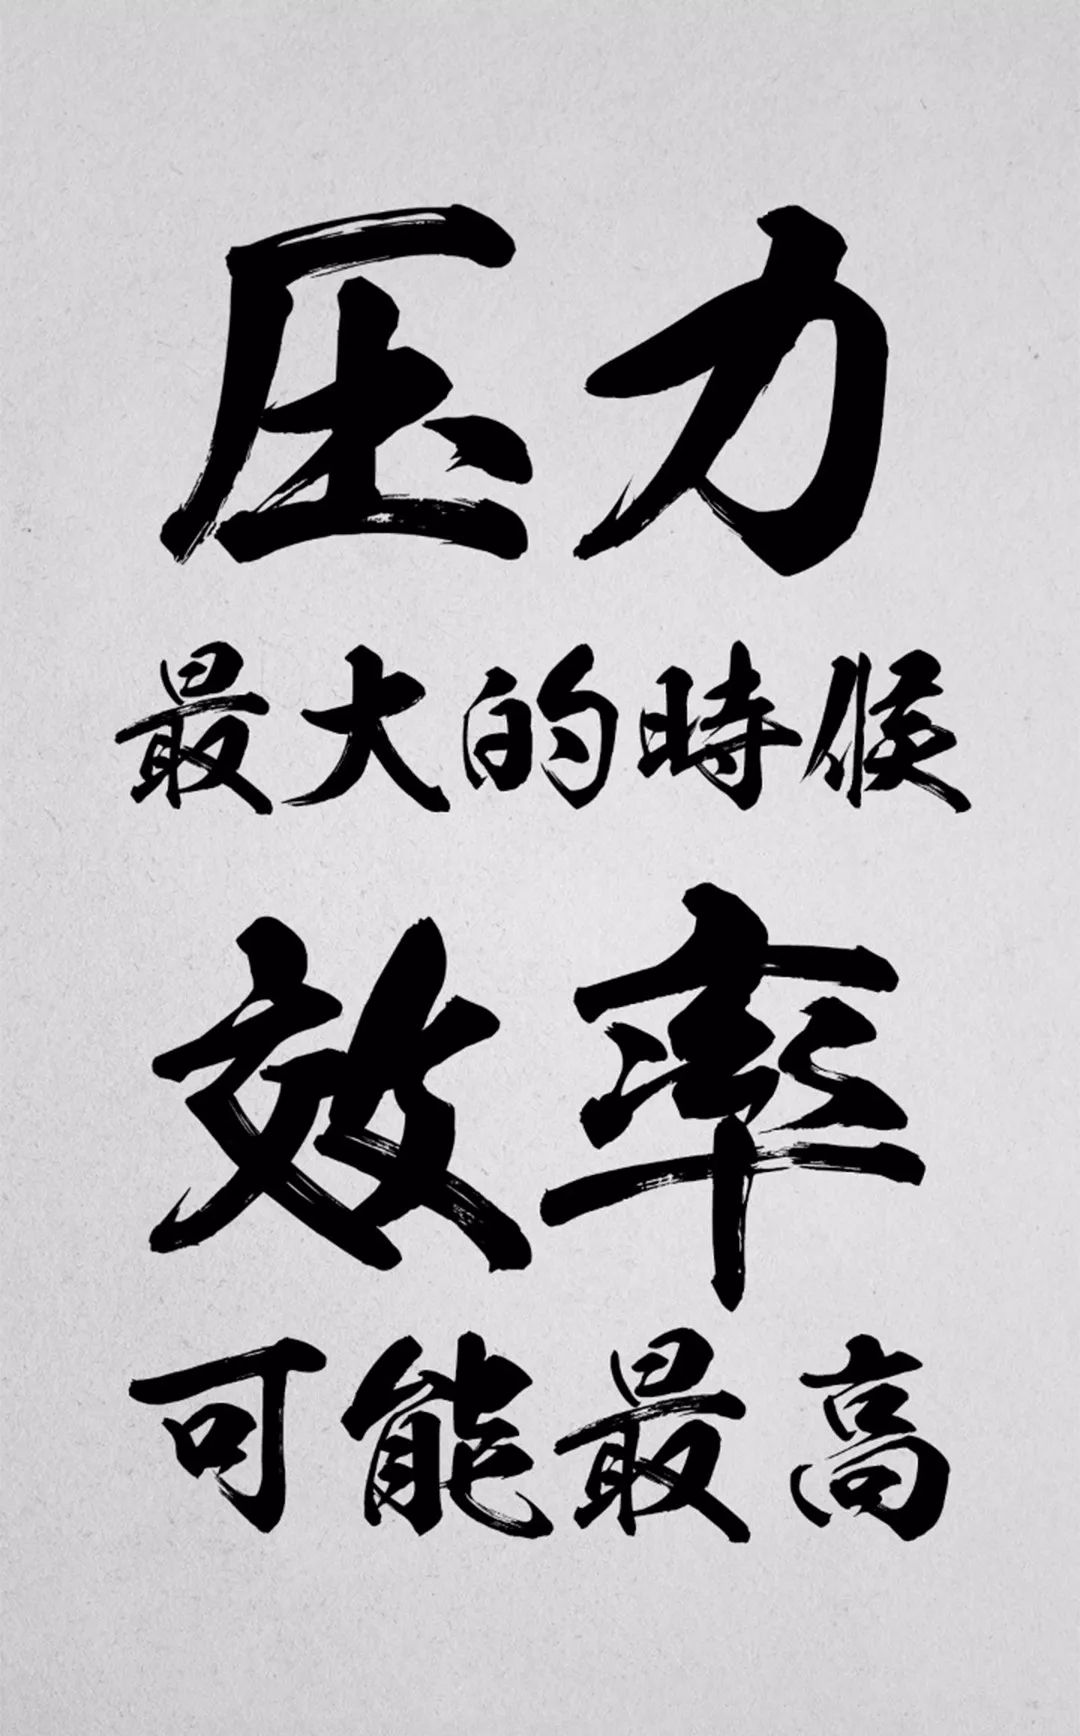 压力
最大的時候
效率
可能最高